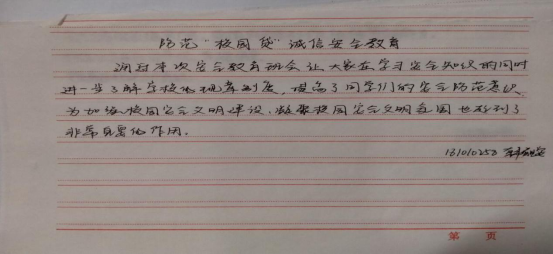 防范“校园贷”诚信安全教育
通过本次安全教育班会让大家在学习安全知识的同时
进一步了解学校的规章制度，提高了同学们的安全防范意识
为加强校园安全文明建设，凝聚校园安全文明氛围也起到了
非常重要的作用。
161010253
第 页